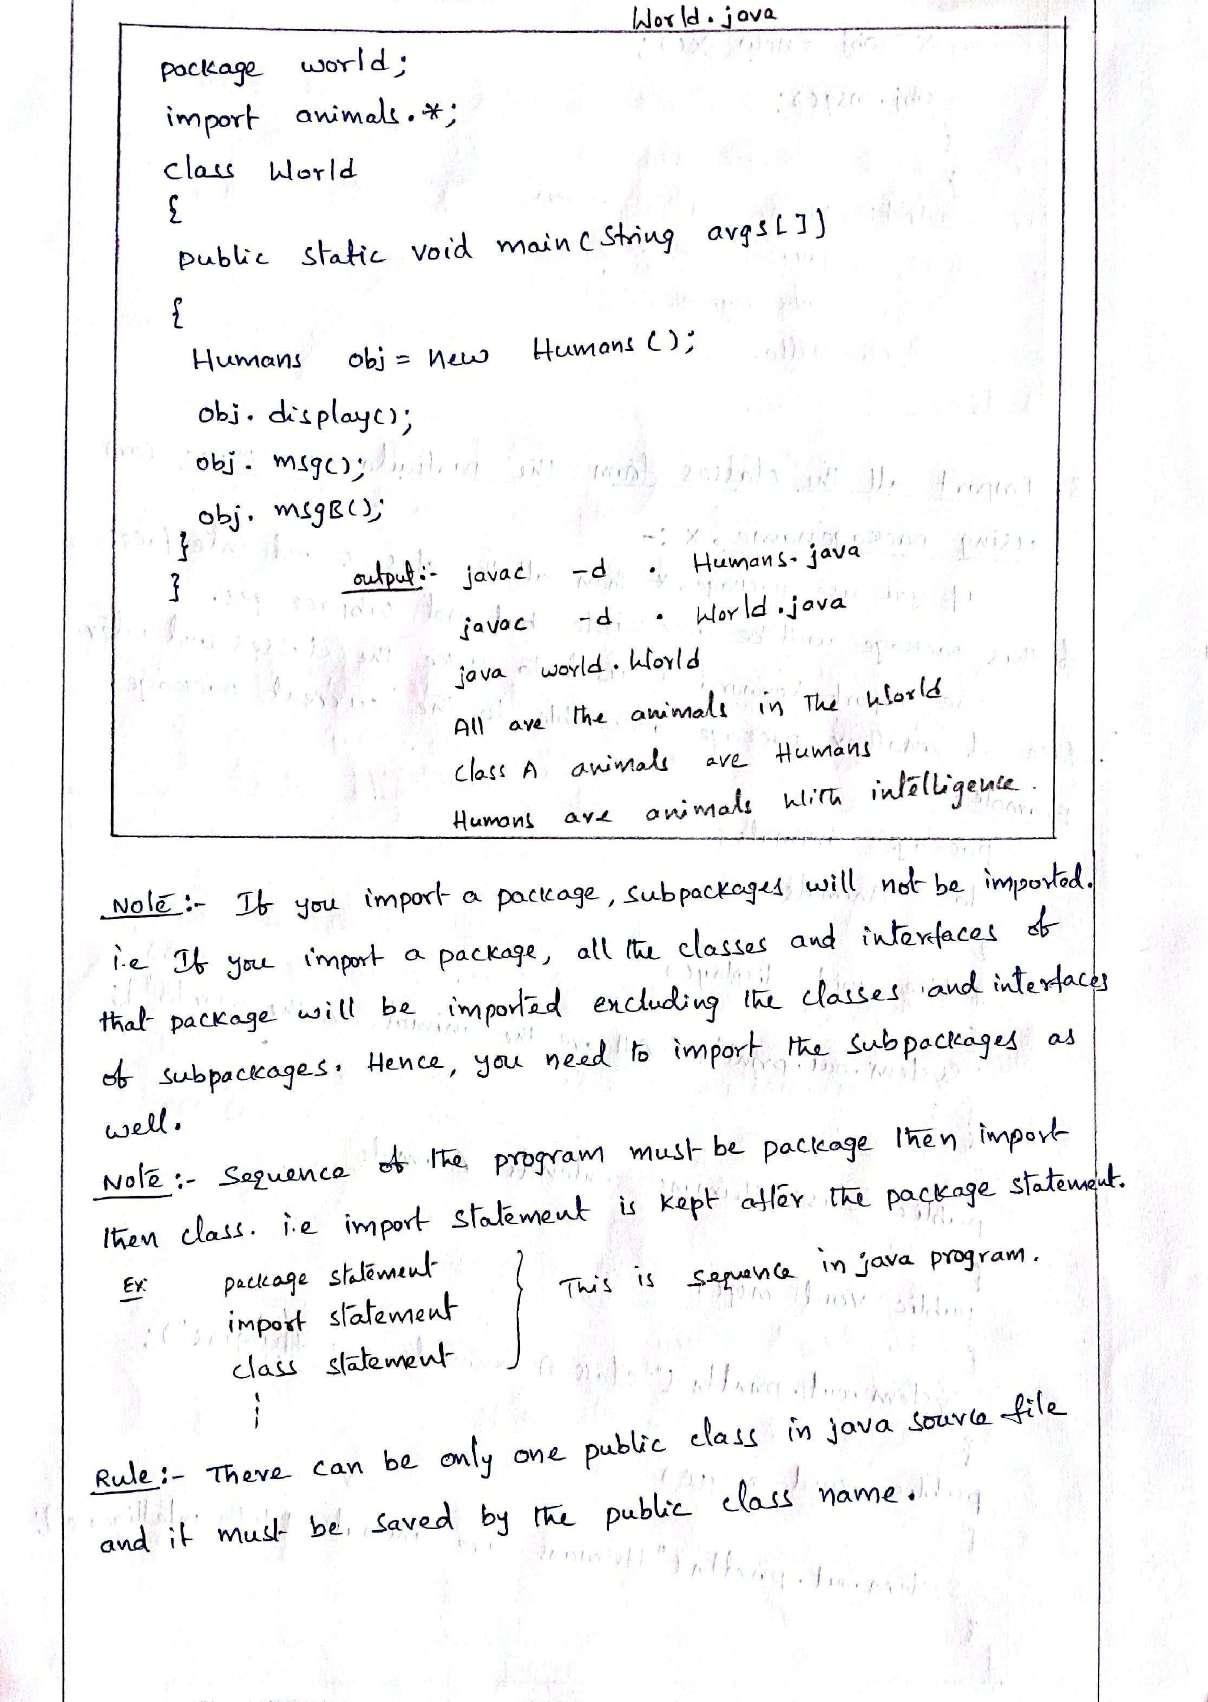 World.java
package world;
import animals.*;
class World
{
public static void main(String args[])
{
Humans obj = new Humans();
obj.display();
obj.msg();
obj.msgB();
}
}
output:- javac -d . Humans.java
javac -d . World.java
java world.World
All are the animals in The World
Class A animals are Humans
Humans are animals With intelligence.
Note:- If you import a package, subpackages will not be imported.
i.e If you import a package, all the classes and interfaces of
that package will be imported excluding the classes and interfaces
of subpackages. Hence, you need to import the subpackages as
well.
Note:- Sequence of the program must be package then import
then class. i.e import statement is kept after the package statement.
Ex: package statement
import statement
class statement
} This is sequence in java program.
Rule:- There can be only one public class in java source file
and it must be saved by the public class name.